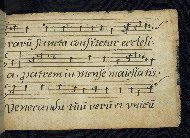 rarū sancta confitetur ecclesi
a. patrem in mense maiestatis.
Venerandū tuū verū et unicū